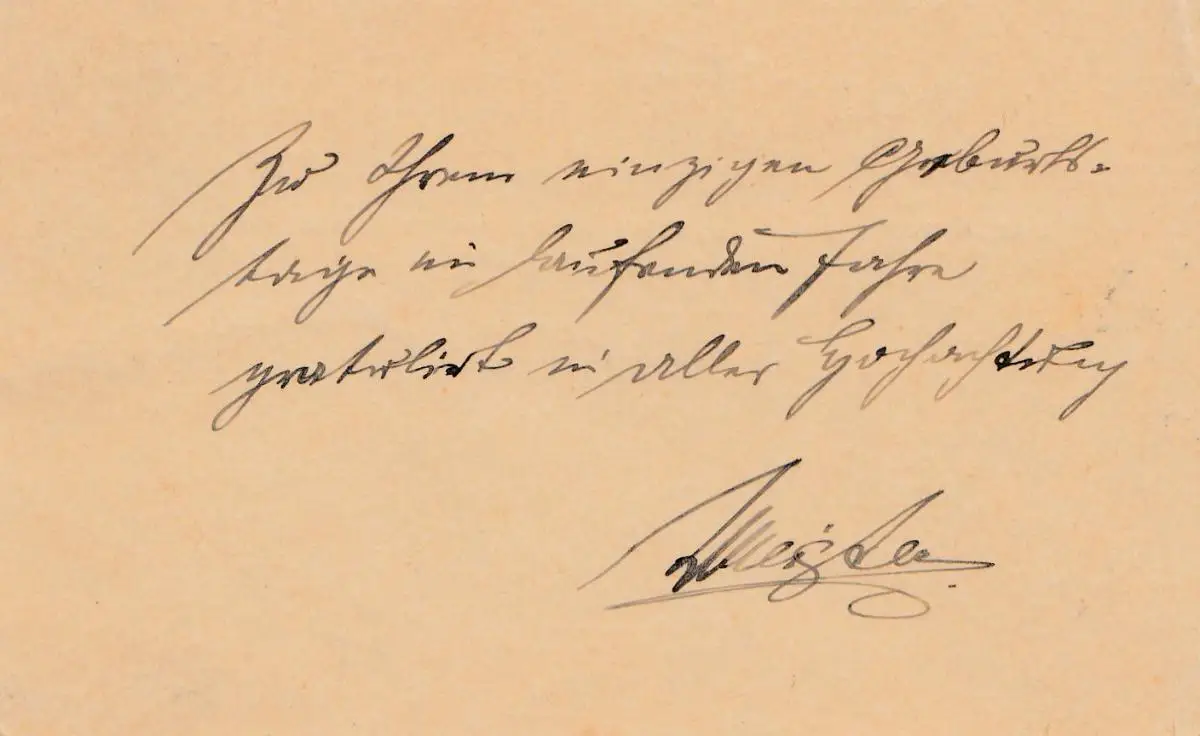 Zu Ihrem einzigen Geburts=
tage im laufenden Jahre
gratulirt in aller Hochachtung